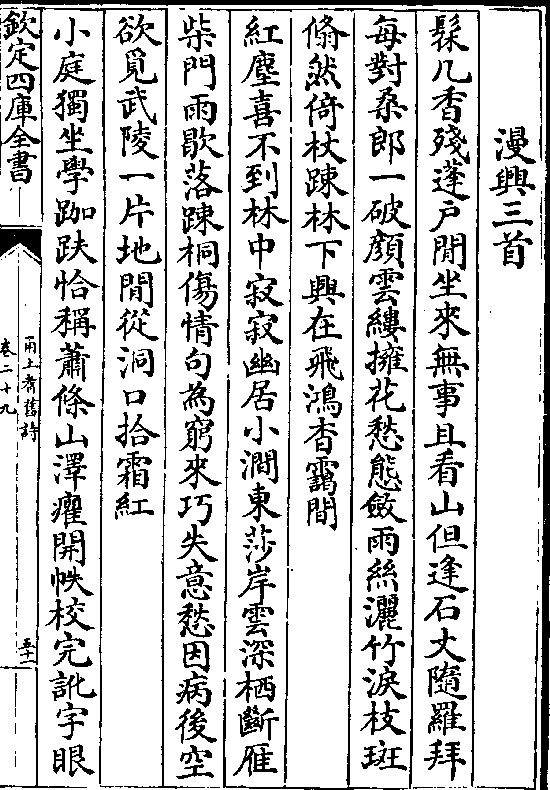 漫興三首
髹几香殘蓬戸閒坐來無事且看山但逢石丈隨羅拜
每對桑郎一破顔雲縷擁花愁態斂雨絲灑竹淚枝斑
翛然倚杖踈林下興在飛鴻杳靄間
紅塵喜不到林中寂寂幽居小澗東莎岸雲深栖斷雁
柴門雨歇落踈桐傷情句為窮來巧失意愁因病後空
欲覓武陵一片地閒從洞口拾霜紅
小庭獨坐學跏趺恰稱蕭條山澤癯開帙校完訛字眼
欽定四庫全書
甬上耆舊詩
卷二十九
五十一